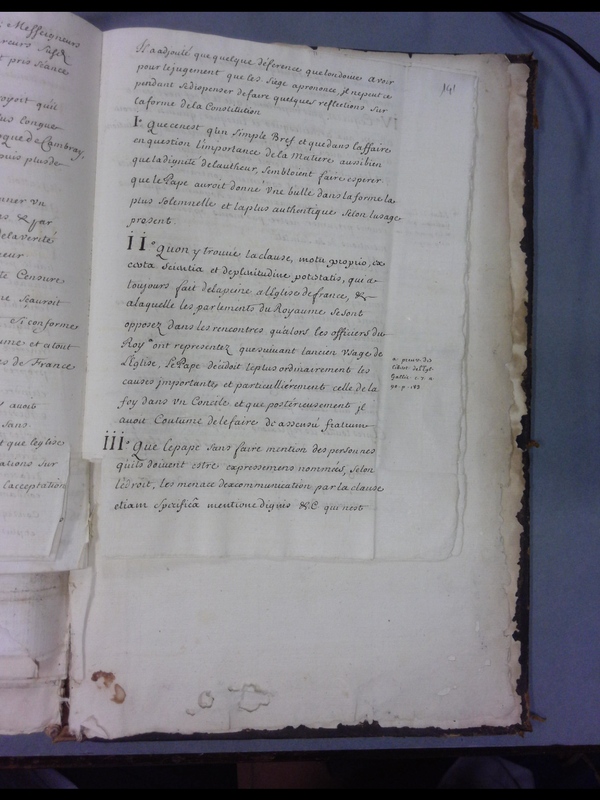 Messeigneurs
reurs Susd
t pris séance
royoit quil
lus longue
oque de Cambray,
puis plus de
nner un
s. & par
dela verité
neur
te Censure
ne scauroit
Si conforme
ume et atout
es de France
y avoit
sans
t que leglise
ations sur
lacceptation
141
Il a adjouté que quelque déference que londoive avoir
pour le jugement que les siege aprononcé, je ne peut ce
pendant se dispenser de faire quelques reflections sur
la forme de la Constitution
I° Que cenest qun Simple Bref et que dans laffaire
en question l'importance de la Matiere aussi bien
que la dignité de lautheur, Sembloient faire esperer
que le Pape auroit donné vne bulle dans la forme la
plus Solemnelle et la plus authentique selon lusage
present.
II° Quon y trouve la clause, motu proprio, ex
certa scientia et deplenitudine potestatis, qui a
toujours fait delapeine aLÉglise defrance, &
alaquelle les parlements du Royaume se sont
opposéz dans les rencontres qualors les officiers du
Roy a ont representéz que suivant lancien Vsage de
LÉglise, Le Pape décidoit leplus ordinairement les
causes importantes et particulliérement celle de la
foy dans vn Concile et que postérieusement jl
avoit Coutume de le faire de assensu fratrum
a. preuv. des
libert. de l'Egl.
Gallic.
iii° Que lepape sans faire mention des personnes
quils doivent estre expressemens nommées, selon
lédroit, les menace dexcommunication par la clause
etiam specifica mentione dignis &C qui nest